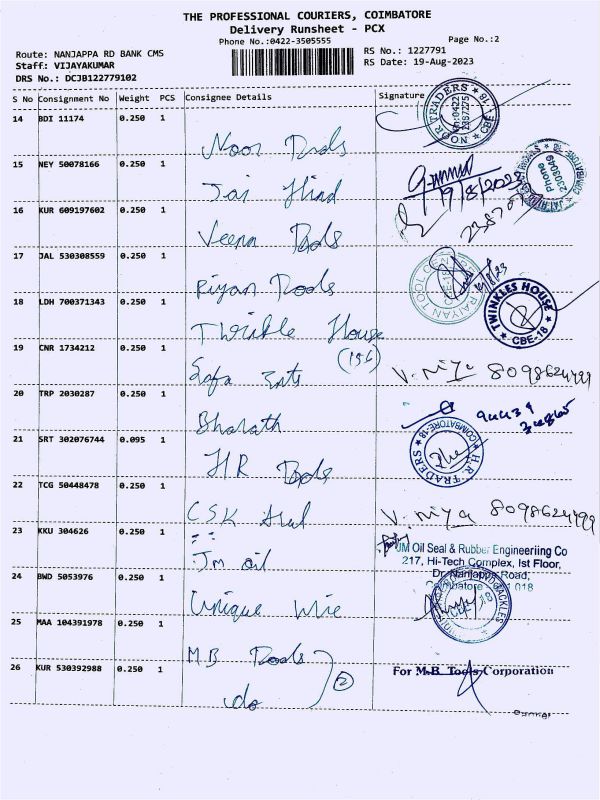 THE PROFESSIONAL COURIERS, COIMBATORE
Delivery Runsheet - PCX
Phone No.:0422-3505555
Page No.:2
Route: NANJAPPA RD BANK CMS
RS No.: 1227791
Staff: VIJAYAKUMAR
RS Date: 19-Aug-2023
DRS No.: DCJB122779102
S No Consignment No Weight PCS Consignee Details Signature
14 BDI 11174 0.250 1
Noor Trads
NOOR TRADERS
CBE-18
15 NEY 50078166 0.250 1
Jai Hind
19/8/2023
Phone
2303049
16 KUR 609197602 0.250 1
Veena Tools
17 JAL 530308559 0.250 1
Riyan Tools
18 LDH 700371343 0.250 1
Twinkle House
(156)
TWINKLES HOUSE
CBE-18
19 CNR 1734212 0.250 1
Safa Ents
V. niya 8098624499
20 TRP 2030287 0.250 1
Bharath
21 SRT 302076744 0.095 1
HR Tools
H.R. TRADERS
COIMBATORE-18
22 TCG 50448478 0.250 1
CSK Seal
V. niya 8098624499
23 KKU 304626 0.250 1
Jm oil
JM Oil Seal & Rubber Engineeriing Co
217, Hi-Tech Complex, Ist Floor,
Dr. Nanjappa Road,
24 BWD 5053976 0.250 1
Unique Wire
25 MAA 104391978 0.250 1
M.B Tools
26 KUR 530392988 0.250 1
do
2
For M.B. Tools Corporation